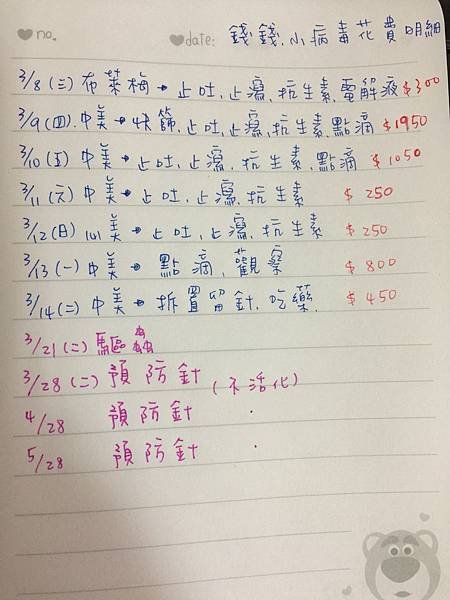 no.
date: 錢錢.小病毒花費明細
3/8 (三) 布萊梅→止吐.止瀉.抗生素.電解液 $300
3/9 (四) 中美→快篩.止吐.止瀉.抗生素.點滴 $1950
3/10 (五) 中美→止吐.止瀉.抗生素.點滴 $1050
3/11 (六) 中美→止吐.止瀉.抗生素 $250
3/12 (日) 中美→止吐.止瀉.抗生素 $250
3/13 (一) 中美→點滴.觀察 $800
3/14 (二) 中美→拆置留針.吃藥. $450
3/21 (二) 驅蟲
3/28 (二) 預防針 (不活化)
4/28 預防針
5/28 預防針